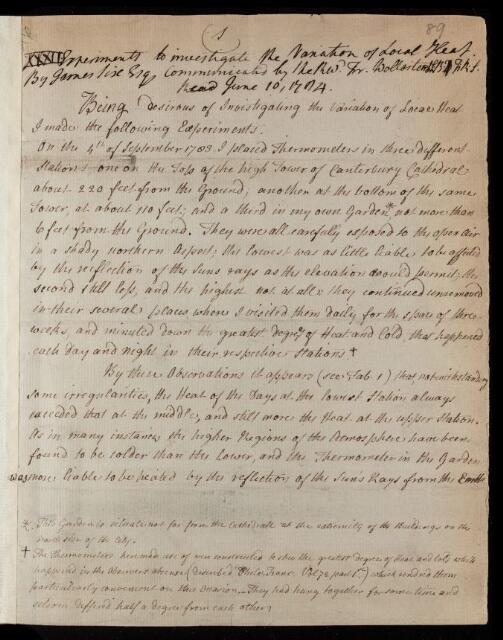 (1
89
XXXII Experiments to investigate the Variation of Local Heat.
By James Six Esq. Communicated by the Revd. Fr. Wollaston LLB FRS.
Read June 10, 1784.
Being desirous of Investigating the variation of Local Heat
I made the following Experiments.
On the 4th of September 1783 I placed Thermometers in three different
Stations, one on the Top of the high Tower of Canterbury Cathedral
about 220 feet from the Ground; another at the bottom of the same
Tower, at about 110 feet; and a third in my own Garden * not more than
6 feet from the Ground. They were all carefully exposed to the open air
in a shady northern Aspect; the lowest was as little liable to be affected
by the reflection of the Suns rays as the elevation would permit; the
second still less, and the highest not at all: they continued unremoved
in their several places where I visited them daily for the space of three
weeks, and minuted down the greatest degree of Heat and Cold that happened
each day and night in their respective Stations †
By these Observations it appears (see Tab. 1) that, notwithstanding
some irregularities, the Heat of the Days at the lowest Station always
exceeded that at the middle, and still more the Heat at the upper Station.
As in many instances the higher Regions of the Atmosphere have been
found to be colder than the lower, and the Thermometer in the Garden
was more liable to be heated by the reflection of the Sun's Rays from the Earth
* This Garden is situate not far from the Cathedral at the extremity of the Buildings on the
side of the City.
† The Thermometers here made use of were constructed to shew the greatest degree of Heat and Cold which
happened in the Observers absence (described Philos. Trans. Vol. 72 part 1st) which rendered them
particularly convenient on this Occasion. They had hung together for some time and
seldom differd half a degree from each other.